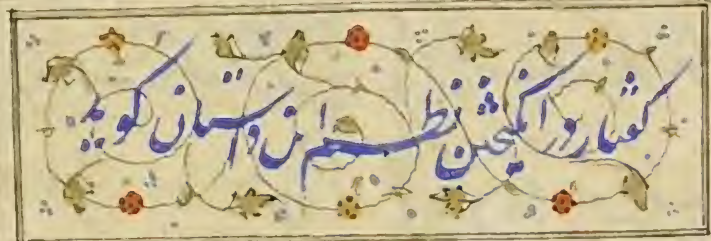 کفتار در انکیختن نظم این داستان کوید